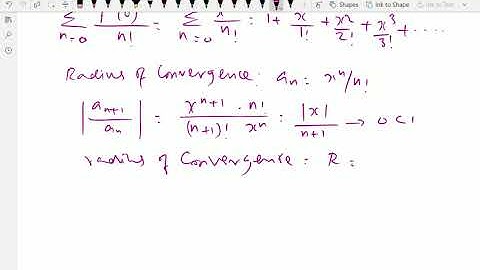 Shapes Ink to Shape Ink to Text
∑ n=0 f(0)/n! = ∑ n=0 xⁿ/n! = 1+ x/1! + x²/2! + x³/3! + ....
Radius of Convergence: aₙ = xⁿ/n!
|aₙ₊₁/aₙ| = xⁿ⁺¹ · n!/(n+1)! xⁿ = |x|/n+1 → 0 < 1
radius of Convergence = R =